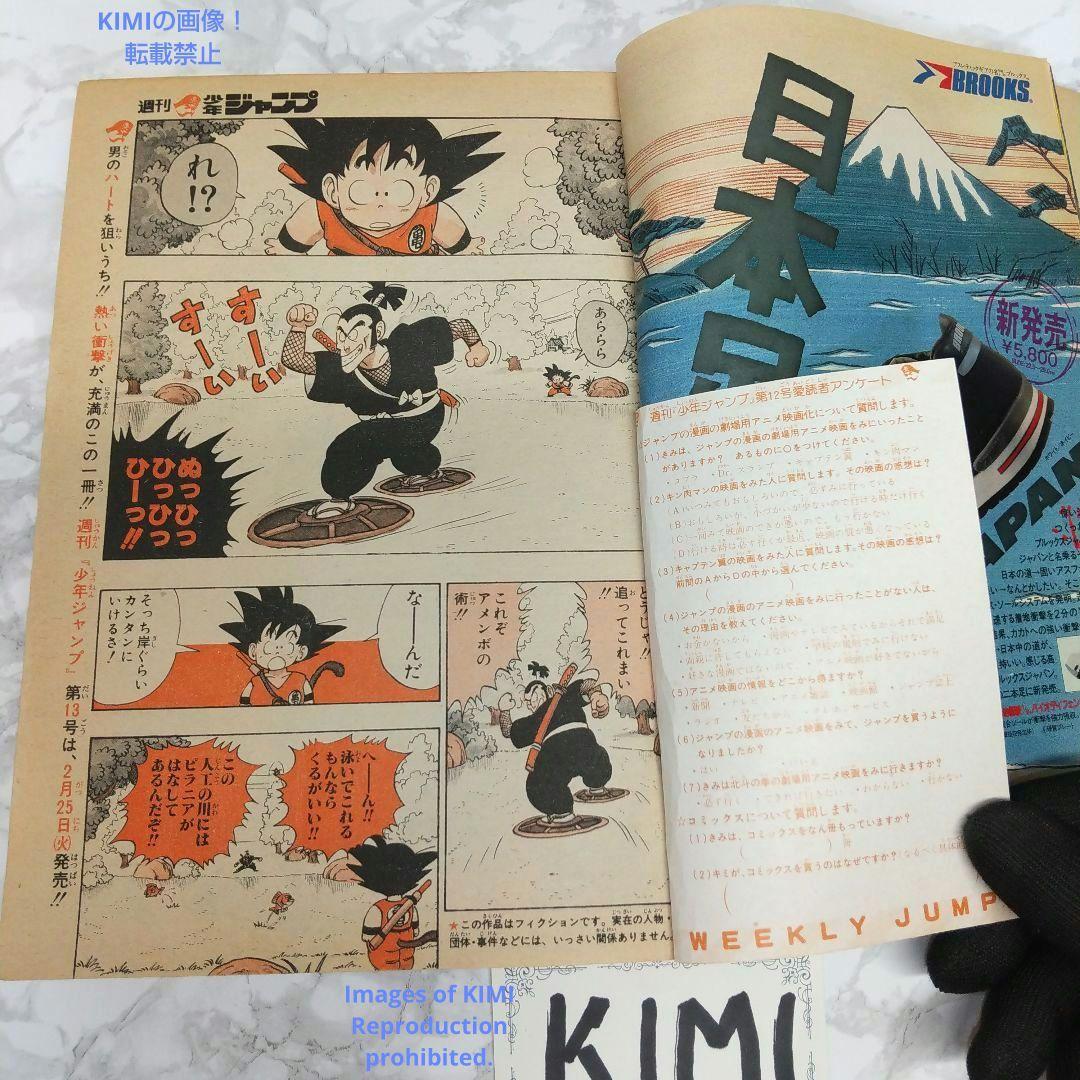 KIMIの画像！
転載禁止
週刊少年ジャンプ
男のハートを狙いうち!!熱い衝撃が、充満のこの一冊!!週刊『少年ジャンプ』第13号は、2月25日(火)発売!!
れ!?
あららら
すーい
すーい
ぬっひっ
ひっひっ
ひーっ!!
なーんだ
そっち岸ぐらい
カンタンに
いけるさ!
追ってこれまい!!
これぞ
アメンボの
術!!
へーん!!
泳いでこれる
もんなら
くるがいい!!
この
人工の川には
ピラニアが
はなして
あるんだぞ!!
★この作品はフィクションです。実在の人物・
団体・事件などには、いっさい関係ありません。
BROOKS
日本足
新発売
¥5,800
週刊・少年ジャンプ」第12号愛読者アンケート
ジャンプの漫画の劇場用アニメ映画化について質問します。
(1)きみは、ジャンプの漫画の劇場用アニメ映画をみにいったこと
がありますか? あるものに○をつけてください。
・コブラ ・Dr.スランプ ・キャプテン翼 ・キン肉マン
(2)キン肉マンの映画をみた人に質問します。その映画の感想は?
(A)いつみてもおもしろいので、必ずみに行っている
(B)おもしろいが、小づかいが少ないので行ける時だけ行く
(3)キャプテン翼の映画をみた人に質問します。その映画の感想は?
前問のAからDの中から選んでください。
(4)ジャンプの漫画のアニメ映画をみに行ったことがない人は、
その理由を教えてください。
(5)アニメ映画の情報をどこから得ますか?
(6)ジャンプの漫画のアニメ映画をみて、ジャンプを買うように
なりましたか?
・はい
(7)きみは北斗の拳の劇場用アニメ映画をみに行きますか?
・必ず行く ・できれば行きたい ・わからない ・行かない
☆コミックスについて質問します。
(1)きみは、コミックスをなん冊もっていますか?
( )冊
(2)キミが、コミックスを買うのはなぜですか?
WEEKLY JUMP
Images of KIMI
Reproduction
prohibited.
KIMI